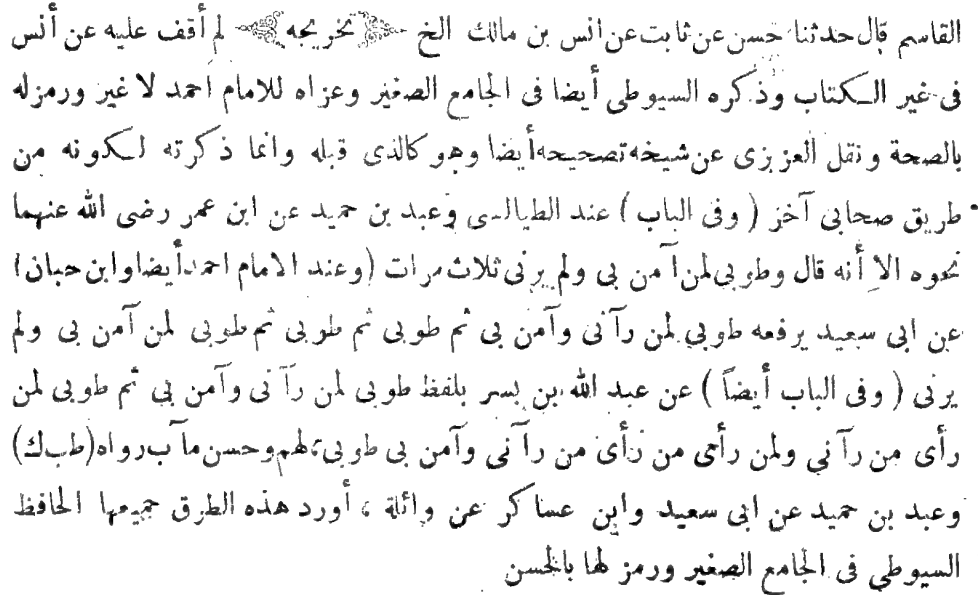 القاسم قال حدثنا حسن عن ثابت عن انس بن مالك الخ ﴿ تخريجه ﴾ لم أقف عليه عن أنس
فى غير الكتاب وذكره السيوطى أيضا فى الجامع الصغير وعزاه للامام احمد لا غير ورمز له
بالصحة ونقل العزيزى عن شيخه تصحيحه أيضا وهو كالذى قبله وانما ذكرته لكونه من
طريق صحابى آخر ( وفى الباب ) عند الطيالسى وعبد بن حميد عن ابن عمر رضى الله عنهما
نحوه الا أنه قال وطوبى لمن آمن بى ولم يرنى ثلاث مرات (وعند الامام احمد أيضا وابن حبان)
عن ابى سعيد يرفعه طوبى لمن رآنى وآمن بى ثم طوبى ثم طوبى ثم طوبى لمن آمن بى ولم
يرنى ( وفى الباب أيضاً ) عن عبد الله بن بسر بلفظ طوبى لمن رآنى وآمن بى ثم طوبى لمن
رأى من رآني ولمن رأى من رأى من رآنى وآمن بى طوبى لهم وحسن مآب رواه (طب ك)
وعبد بن حميد عن ابى سعيد وابن عساكر عن واثلة ، أورد هذه الطرق جميعها الحافظ
السيوطي فى الجامع الصغير ورمز لها بالحسن